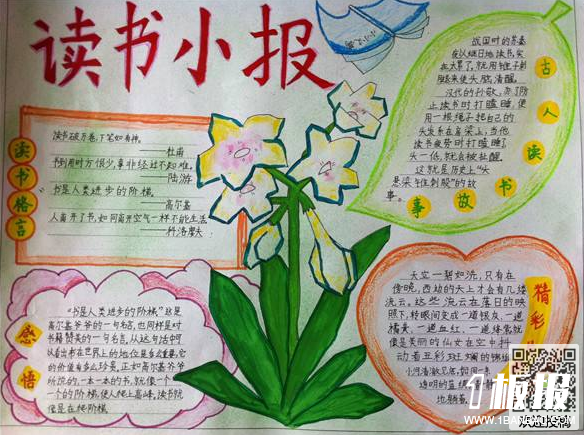 读书小报
读书格言
读书破万卷,下笔如有神。
——杜甫
书到用时方恨少,事非经过不知难。
——陆游
书是人类进步的阶梯。
——高尔基
人离开了书,如同离开空气一样不能生活
——科洛廖夫
战国时的苏秦
夜以继日地读书,实
在太累了,就用锥子刺
腿来使头脑清醒。
汉代的孙敬,为了防
止读书时打瞌睡,便
用一根绳子把自己的
头发系在房梁上,当他
读书疲劳时打瞌睡了
头一低,就会被扯醒
这就是历史上"头
悬梁、锥刺股"的故
事。
古人读书故事
感悟
"书是人类进步的阶梯"这是
高尔基爷爷的一句名言,也同样是对
书籍赞美的一句名言,从这句话中可
以看出书在世界上的地位是多么重要,它
的价值有多么珍贵,正如高尔基爷爷
所说的,一本一本的书,就像一个
一个的阶梯,使人爬上高峰,读书就
像是在爬阶梯
精彩
天空一碧如洗,只有在
傍晚,西边的天上才会有几缕
流云。这些流云在落日的映
照下,转眼间变成一道银灰,一道
橘黄,一道血红,一道绛紫,就
像是美丽的仙女在空中抖
动着五彩斑斓的锦
小河清
透明的蓝
地躺着。
1板报
WWW.1BANBAO.COM